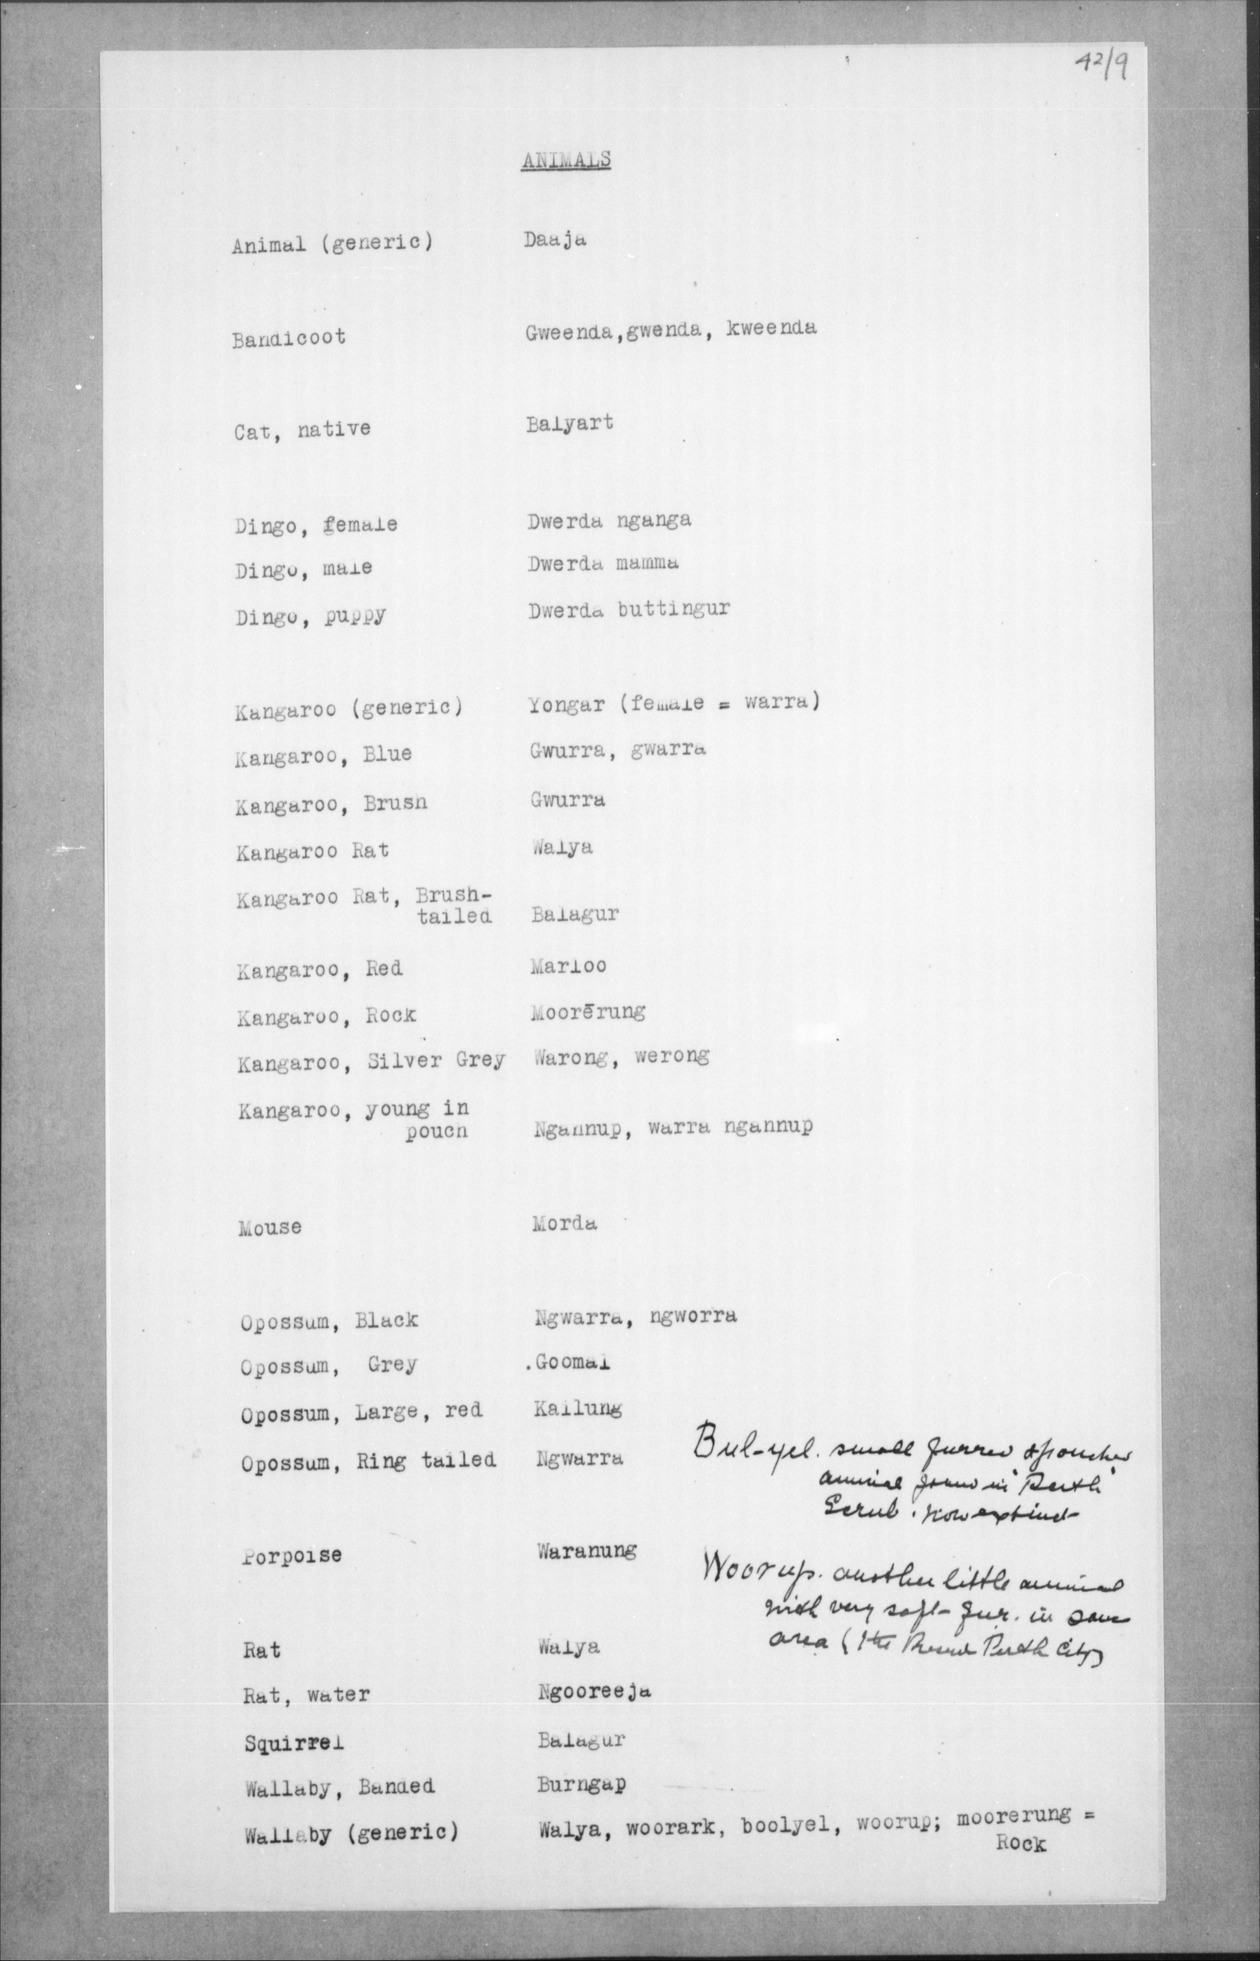 42/9
ANIMALS
Animal (generic) Daaja
Bandicoot Gweenda,gwenda, kweenda
Cat, native Balyart
Dingo, female Dwerda nganga
Dingo, male Dwerda mamma
Dingo, puppy Dwerda buttingur
Kangaroo (generic) Yongar (female = warra)
Kangaroo, Blue Gwurra, gwarra
Kangaroo, Brush Gwurra
Kangaroo Rat Walya
Kangaroo Rat, Brush-
tailed Balagur
Kangaroo, Red Marloo
Kangaroo, Rock Moorērung
Kangaroo, Silver Grey Warong, werong
Kangaroo, young in
pouch Ngannup, warra ngannup
Mouse Morda
Opossum, Black Ngwarra, ngworra
Opossum, Grey .Goomal
Opossum, Large, red Kailung
Opossum, Ring tailed Ngwarra
Bul-yel. small furred & pouched
animal found in "Perth"
Scrub. now extinct
Porpoise Waranung
Woorup. another little animal
with very soft fur. in same
area (the Present Perth City)
Rat Walya
Rat, water Ngooreeja
Squirrel Balagur
Wallaby, Banded Burngap
Wallaby (generic) Walya, woorark, boolyel, woorup; moorerung =
Rock